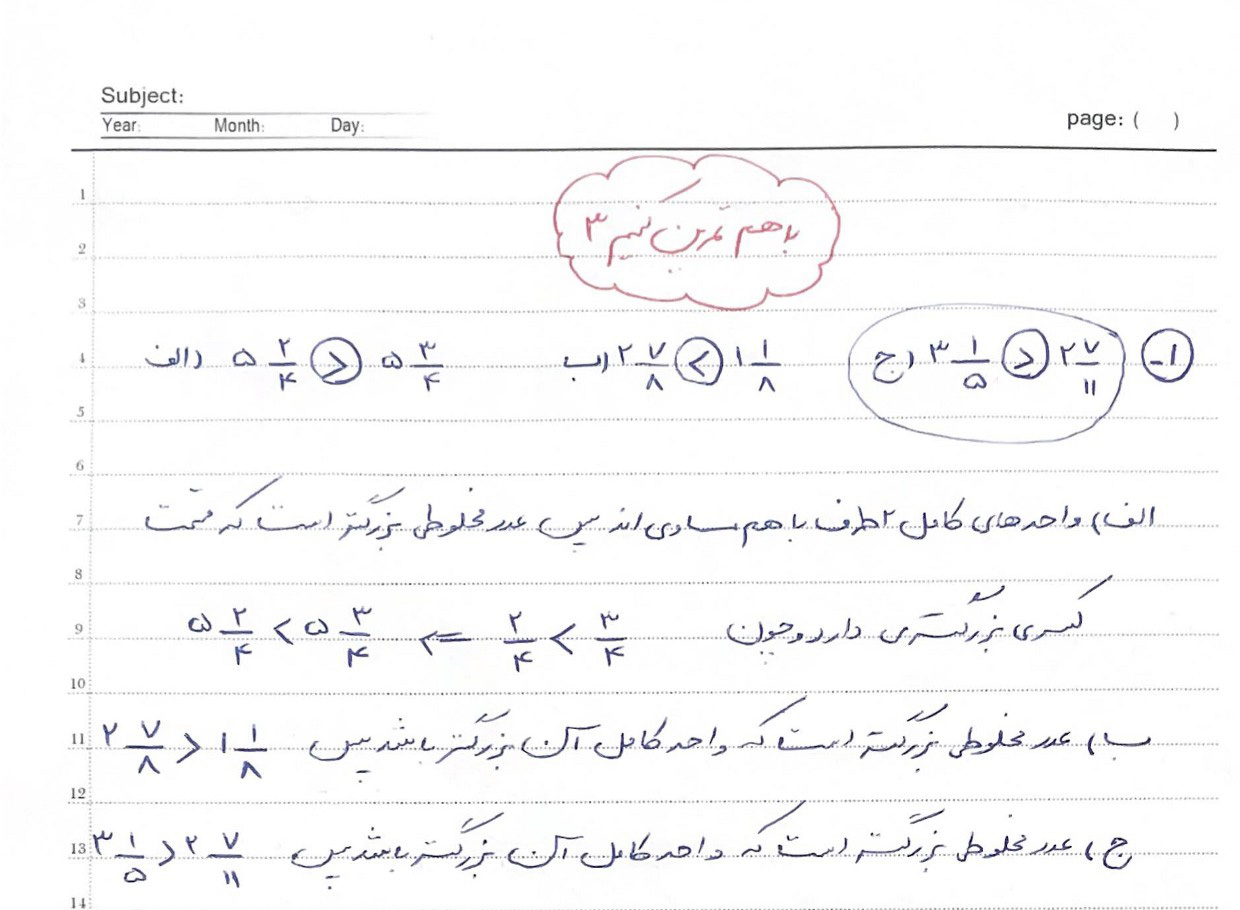 Subject:
page: ( )
Year: Month: Day:
1
2
با هم تمرین کنیم ۳
3
4 ۱- ج) ۳ ۱/۵ > ۲ ۷/۱۱ ب) ۲ ۷/۸ < ۱ ۱/۸ الف) ۵ ۲/۴ > ۵ ۳/۴
5
6
7 الف) واحدهای کامل ۲ طرف با هم مساوی اند پس عدد مخلوطی بزرگتر است که قسمت
8
9 کسری بزرگتری دارد و چون ۲/۴ < ۳/۴ ⇐ ۵ ۲/۴ < ۵ ۳/۴
10
11 ب) عدد مخلوطی بزرگتر است که واحد کامل آن بزرگتر باشد پس ۲ ۷/۸ > ۱ ۱/۸
12
13 ج) عدد مخلوطی بزرگتر است که واحد کامل آن بزرگتر باشد پس ۳ ۱/۵ > ۲ ۷/۱۱
14